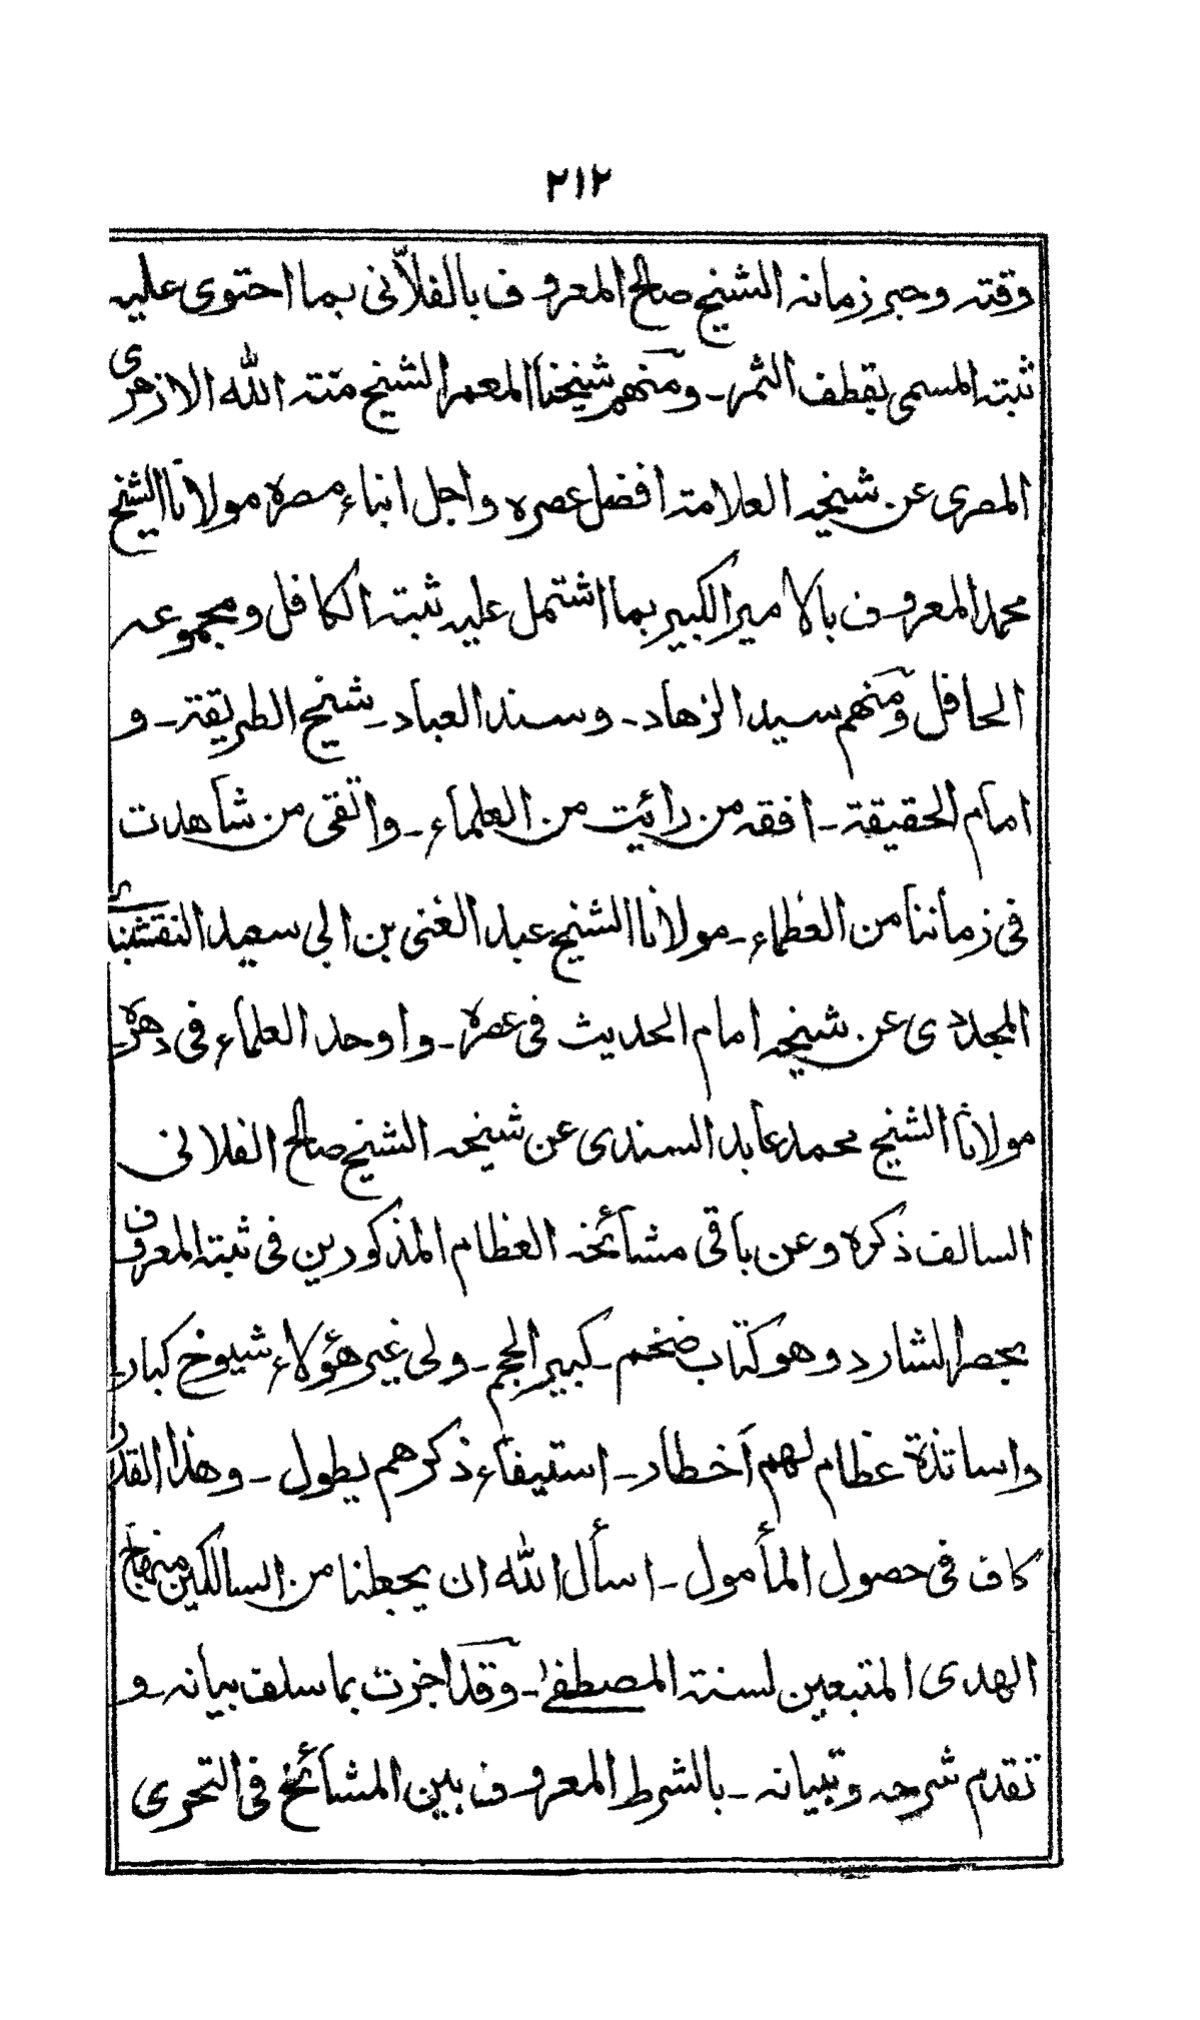 ٢١٢
وقته وحبر زمانه الشيخ صالح المعروف بالفلّانى بما احتوى عليه
ثبته المسمى بقطف الثمر ـ ومنهم شيخنا المعمر الشيخ منة الله الازهرى
المصرى عن شيخه العلامة افضل عصره واجل ابناء مصره مولانا الشيخ
محمد المعروف بالامير الكبير بما اشتمل عليه ثبته الكافل ومجموعه
الحافل ومنهم سيد الزهاد ـ وسند العباد ـ شيخ الطريقة ـ و
امام الحقيقة ـ افقه من رائيت من العلماء ـ واتقى من شاهدت
فى زماننا من العظماء ـ مولانا الشيخ عبد الغنى بن ابى سعيد النقشبندى
المجددى عن شيخه امام الحديث فى عصره ـ واوحد العلماء فى دهره ـ
مولانا الشيخ محمد عابد السندى عن شيخه الشيخ صالح الفلانى
السالف ذكره وعن باقى مشائخه العظام المذكورين فى ثبته المعروف
بحصر الشارد وهو كتاب ضخم ـ كبير الحجم ـ ولى غير هؤلاء شيوخ كبار ـ
واساتذة عظام لهم اخطار ـ استيفاء ذكرهم يطول ـ وهذا القدر
كاف فى حصول المأمول ـ اسأل الله ان يجعلنا من السالكين منهاج
الهدى المتبعين لسنة المصطفىٰ ـ وقد اجزت بما سلف بيانه ـ و
تقدم شرحه وتبيانه ـ بالشرط المعروف بين المشائخ فى التحرى